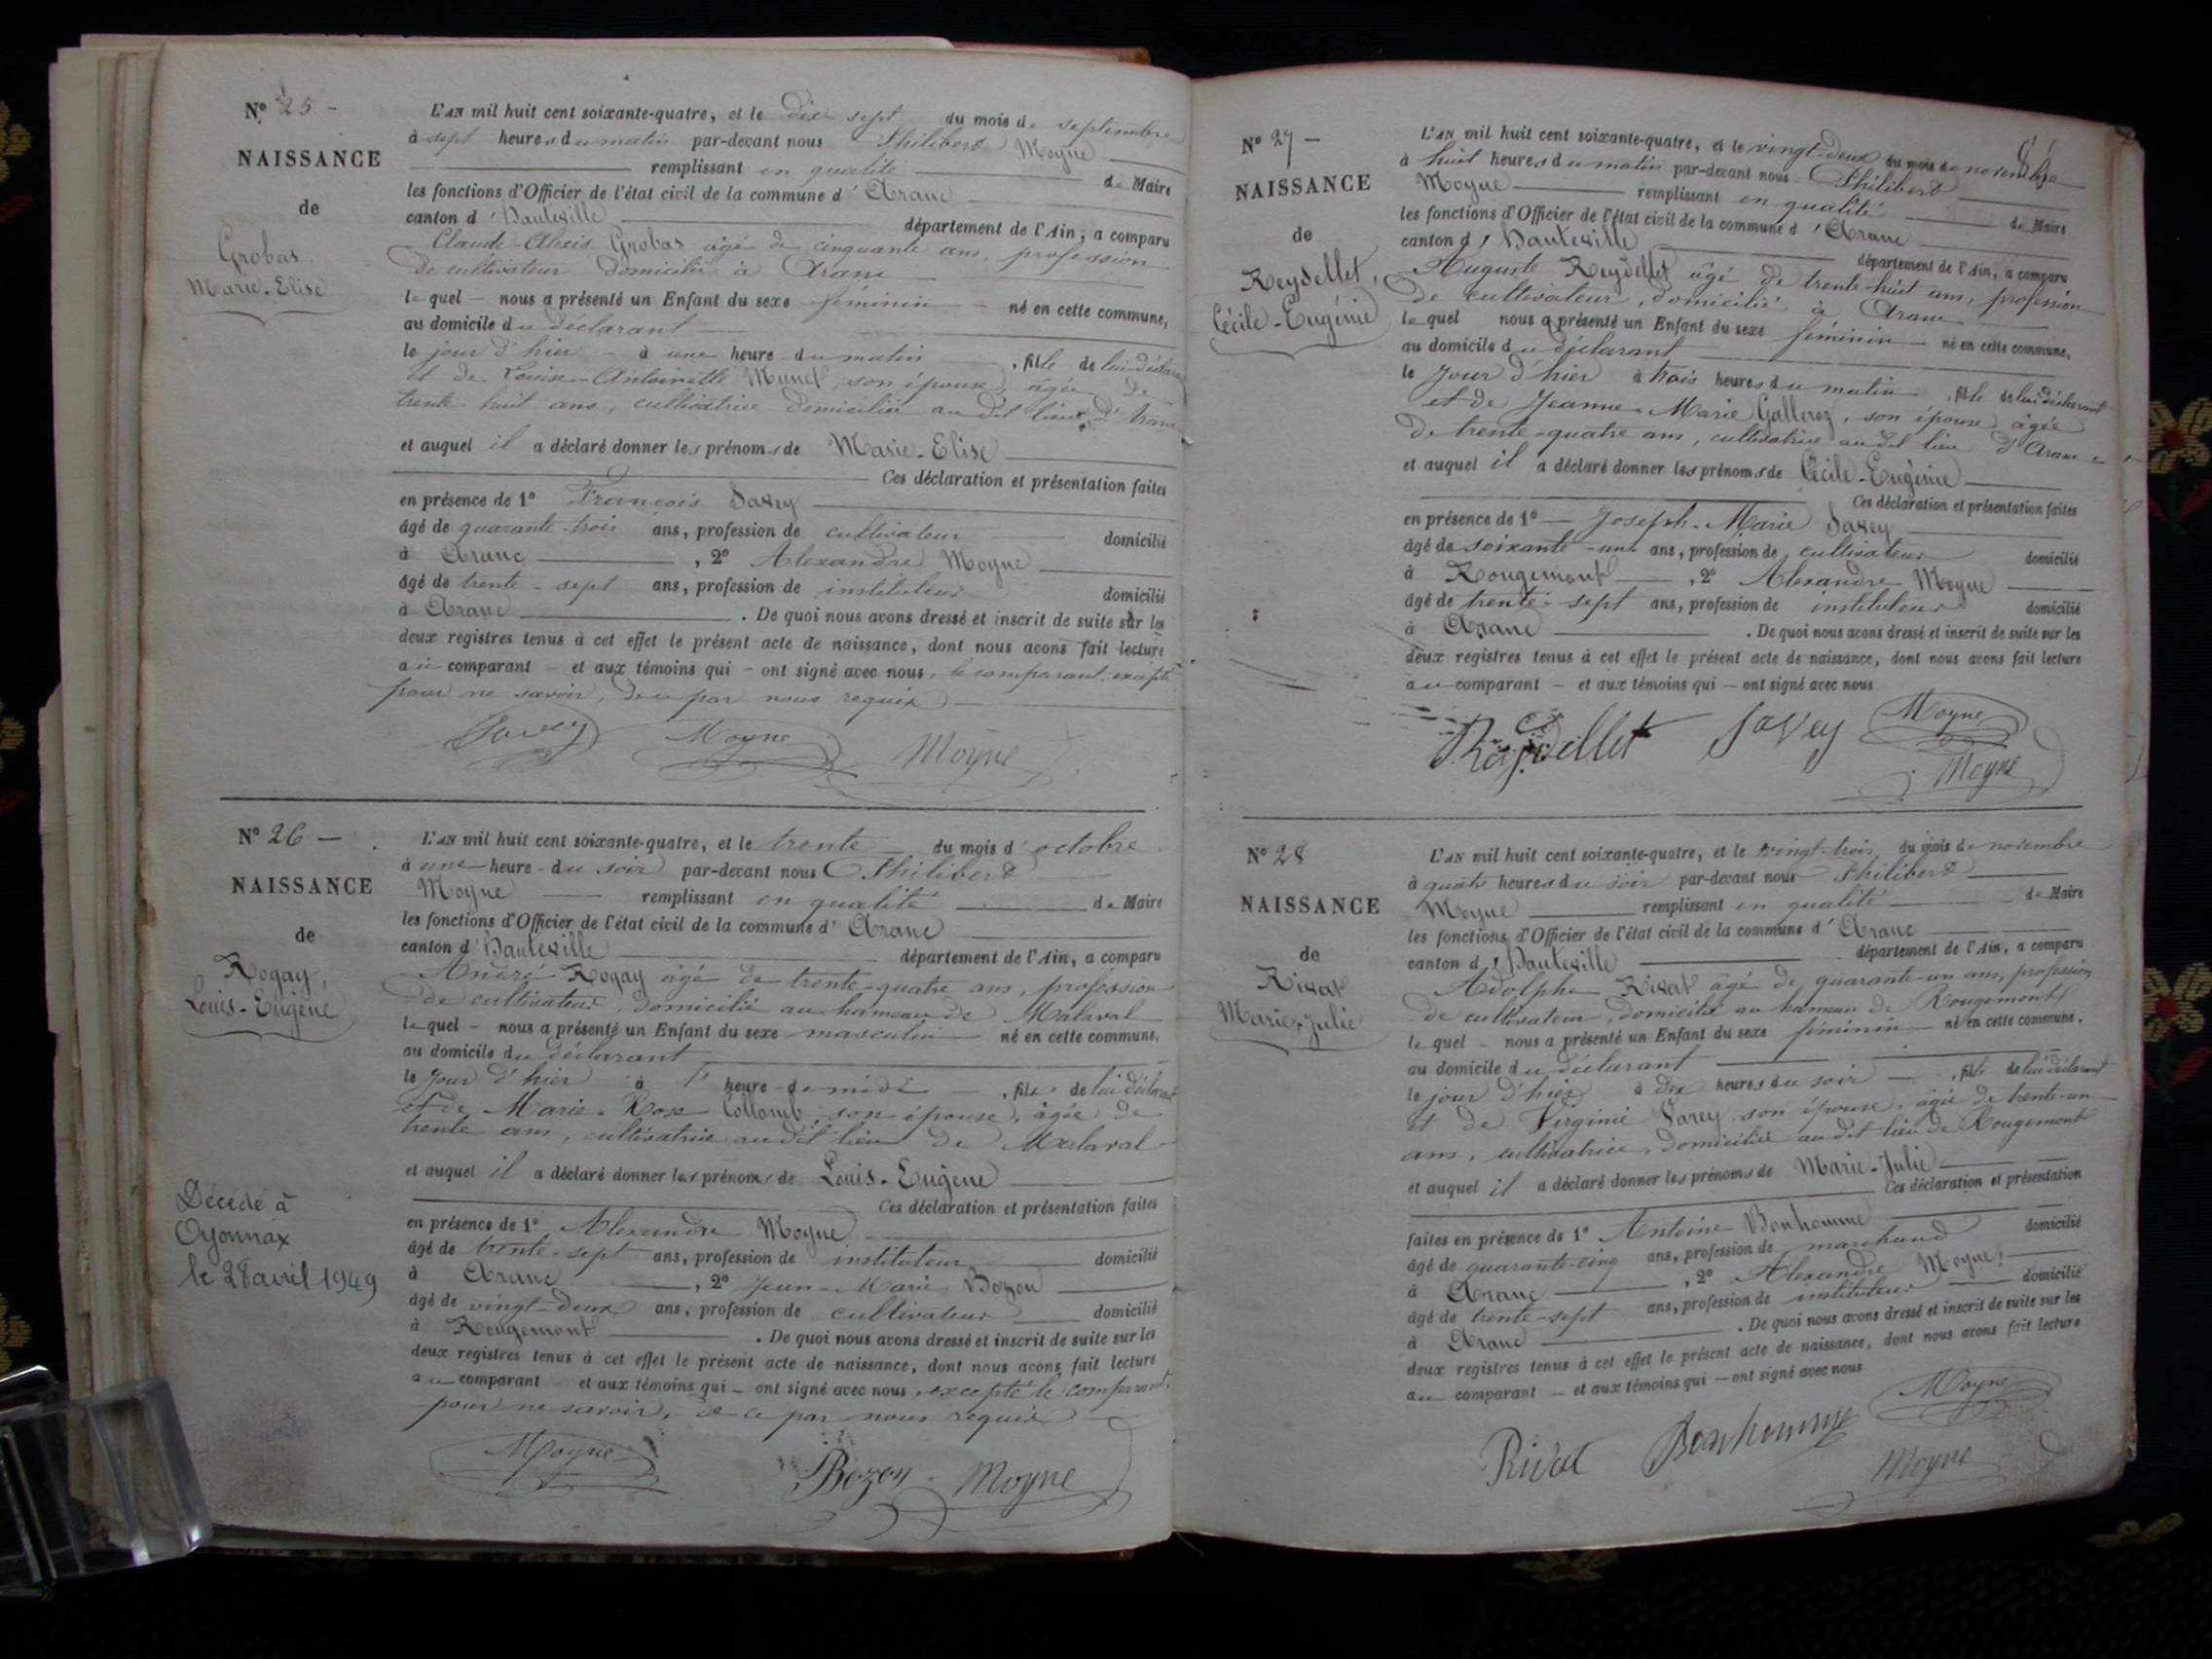 N° 25 -
NAISSANCE
de
Grobas
Marie-Elise
L'AN mil huit cent soixante-quatre, et le dix sept du mois de septembre
à sept heures du matin par-devant nous Philibert Moyne
remplissant en qualité de Maire
les fonctions d'Officier de l'état civil de la commune d'Aranc
canton d'Hauteville département de l'Ain, a comparu
Claude-Alexis Grobas âgé de cinquante ans, profession
de cultivateur domicilié à Aranc
lequel - nous a présenté un Enfant du sexe féminin - né en cette commune,
au domicile du déclarant
le jour d'hier - à une heure du matin , fille de lui déclarant
et de Louise-Antoinette son épouse, âgée de
trente huit ans, cultivatrice domiciliée au dit lieu d'Aranc
et auquel il a déclaré donner les prénoms de Marie-Elise
Ces déclaration et présentation faites
en présence de 1° François Savey
âgé de quarante-trois ans, profession de cultivateur domicilié
à Aranc , 2° Alexandre Moyne
âgé de trente-sept ans, profession de instituteur domicilié
à Aranc . De quoi nous avons dressé et inscrit de suite sur les
deux registres tenus à cet effet le présent acte de naissance, dont nous avons fait lecture
au comparant - et aux témoins qui - ont signé avec nous, le comparant excepté
pour ne savoir, de ce par nous requis
Savey Moyne Moyne
N° 26 -
NAISSANCE
de
Rogay,
Louis-Eugène
Décédé à
Oyonnax
le 28 avril 1949
L'AN mil huit cent soixante-quatre, et le trente du mois d'octobre
à une heure du soir par-devant nous Philibert
Moyne remplissant en qualité de Maire
les fonctions d'Officier de l'état civil de la commune d'Aranc
canton d'Hauteville département de l'Ain, a comparu
André Rogay âgé de trente-quatre ans, profession
de cultivateur, domicilié au hameau de Malaval
lequel - nous a présenté un Enfant du sexe masculin né en cette commune,
au domicile du déclarant
le jour d'hier à l'heure de midi , fils de lui déclarant
et de Marie-Rose Collomb, son épouse, âgée de
trente ans, cultivatrice audit lieu de Malaval
et auquel il a déclaré donner les prénoms de Louis-Eugène
Ces déclaration et présentation faites
en présence de 1° Alexandre Moyne
âgé de trente-sept ans, profession de instituteur domicilié
à Aranc , 2° Jean-Marie Bozon
âgé de vingt-deux ans, profession de cultivateur domicilié
à Rougemont . De quoi nous avons dressé et inscrit de suite sur les
deux registres tenus à cet effet le présent acte de naissance, dont nous avons fait lecture
au comparant et aux témoins qui - ont signé avec nous, excepté le comparant
pour ne savoir, de ce par nous requis
Moyne Bozon Moyne
N° 27 -
NAISSANCE
de
Reydellet,
Cécile-Eugénie
L'AN mil huit cent soixante-quatre, et le vingt-deux du mois de novembre
à huit heures du matin par-devant nous Philibert
Moyne remplissant en qualité de Maire
les fonctions d'Officier de l'état civil de la commune d'Aranc
canton d'Hauteville département de l'Ain, a comparu
Auguste Reydellet âgé de trente-huit ans, profession
de cultivateur, domicilié à Aranc
lequel nous a présenté un Enfant du sexe féminin né en cette commune,
au domicile du déclarant
le jour d'hier à trois heures du matin , fille de lui déclarant
et de Jeanne-Marie Gallerez, son épouse, âgée
de trente-quatre ans, cultivatrice audit lieu d'Aranc
et auquel il a déclaré donner les prénoms de Cécile-Eugénie
Ces déclaration et présentation faites
en présence de 1° - Joseph-Marie Savey
âgé de soixante-un ans, profession de cultivateur domicilié
à Rougemont , 2° Alexandre Moyne
âgé de trente-sept ans, profession de instituteur domicilié
à Aranc . De quoi nous avons dressé et inscrit de suite sur les
deux registres tenus à cet effet le présent acte de naissance, dont nous avons fait lecture
au comparant - et aux témoins qui - ont signé avec nous
Reydellet Savey Moyne
Moyne
N° 28
NAISSANCE
de
Rivat
Marie-Julie
L'AN mil huit cent soixante-quatre, et le vingt-trois du mois de novembre
à quatre heures du soir par-devant nous Philibert
Moyne remplissant en qualité de Maire
les fonctions d'Officier de l'état civil de la commune d'Aranc
canton d'Hauteville département de l'Ain, a comparu
Adolphe Rivat âgé de quarante-un ans, profession
de cultivateur, domicilié au hameau de Rougemont
lequel - nous a présenté un Enfant du sexe féminin né en cette commune,
au domicile du déclarant
le jour d'hier à dix heures du soir , fille de lui déclarant
et de Virginie Savey son épouse, âgée de trente-un
ans, cultivatrice, domiciliée audit lieu de Rougemont
et auquel il a déclaré donner les prénoms de Marie-Julie
Ces déclaration et présentation
faites en présence de 1° Antoine Bonhomme
âgé de quarante-cinq ans, profession de marchand domicilié
à Aranc , 2° Alexandre Moyne,
âgé de trente-sept ans, profession de instituteur domicilié
à Aranc . De quoi nous avons dressé et inscrit de suite sur les
deux registres tenus à cet effet le présent acte de naissance, dont nous avons fait lecture
au comparant - et aux témoins qui - ont signé avec nous
Rivat Bonhomme Moyne
Moyne